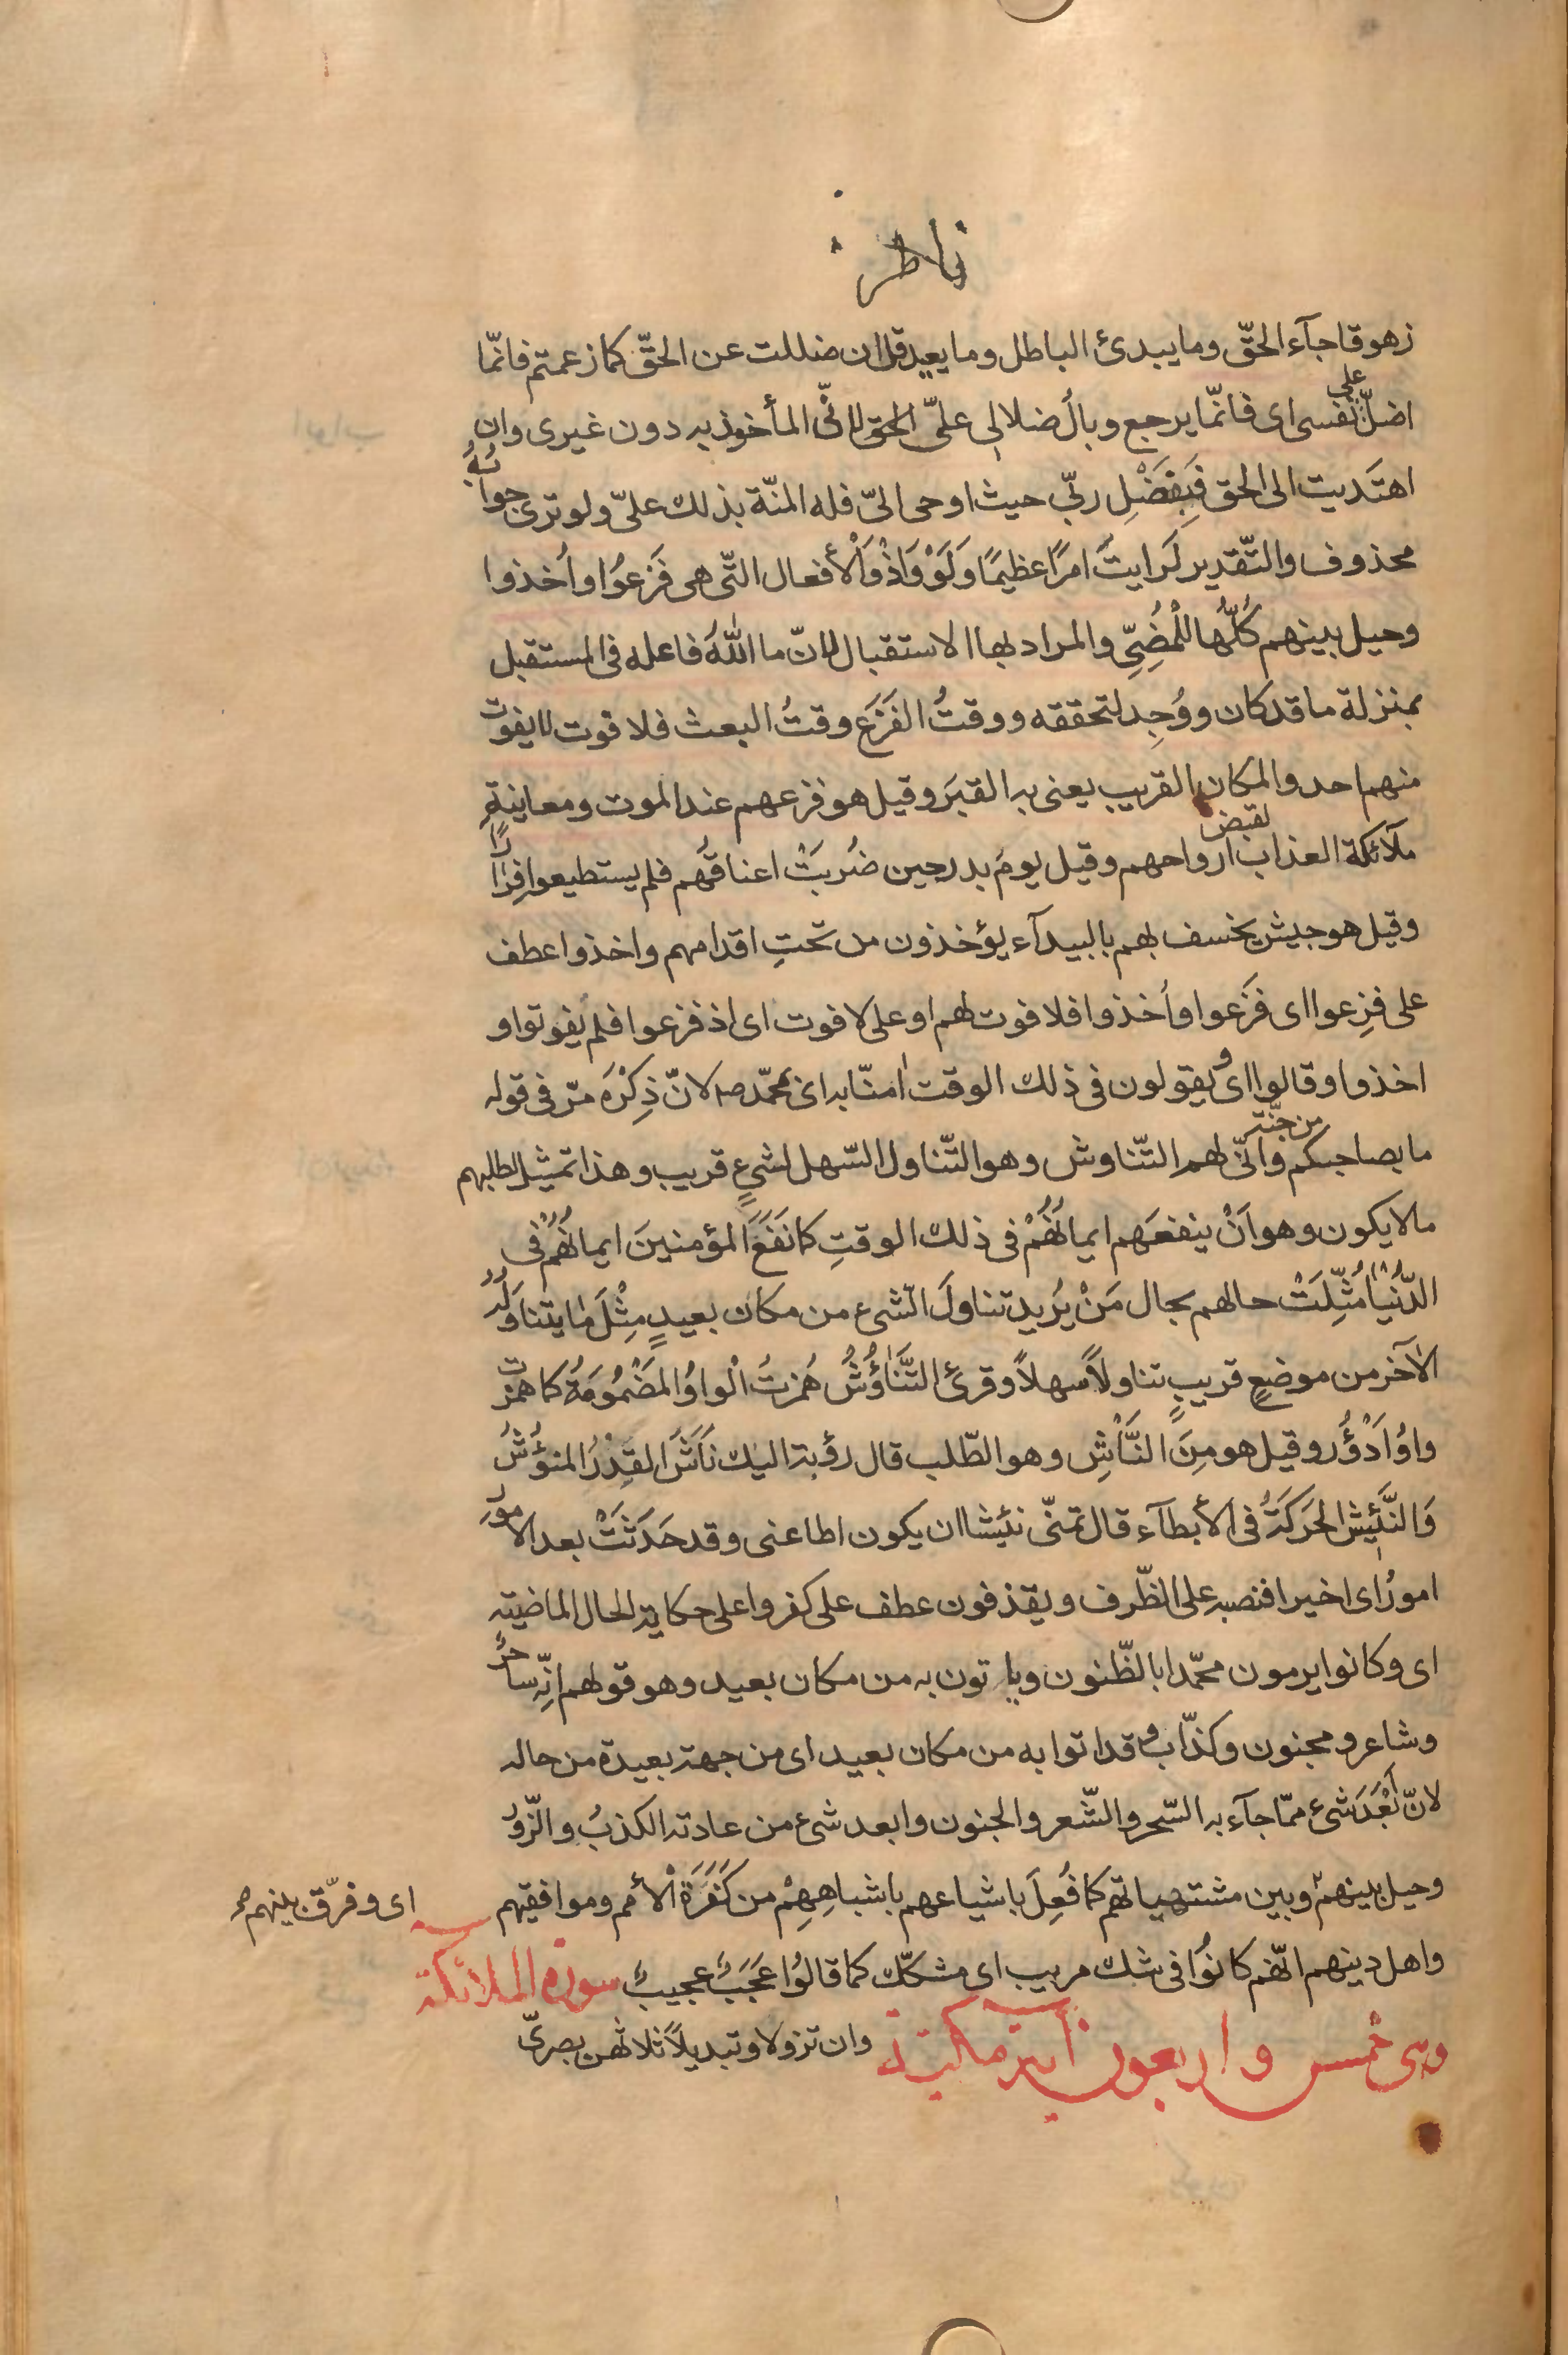 فاطر
زهوقا جآء الحقّ وما يبدئ الباطل وما يعيد قل ان ضللت عن الحقّ كما زعمتم فانّما
اضلّ على نفسى اى فانّما يرجع وبالُ ضلالى علىّ الحق لانّى المأخوذ به دون غيرى وان
اهتَديت الى الحق فَبِفَضْلِ ربّى حيث اوحى الىّ فله المنّة بذلك علىّ ولو ترى جوابُهُ
محذوف والتّقدير لَرَايتَ امرًا عظيمًا وَلَوْ وَاذْ وَالْأفعال التّى هى فَزِعوُا واُخذوا
وحيل بينهم كُلُّها لِلْمُضِىِّ والمراد بها الاستقبال لانّ ما اللّهُ فاعله فى المستقبل
بمنزلة ما قد كان ووُجِد لتحققه ووقتُ الفَزَع وقتُ البعث فلا فوت لا يفوت
منهم احد والمكان القريب يعنى به القبَر وقيل هو فزعهم عند الموت ومعاينةِ
ملآئكة العذاب لقبض ارواحهم وقيل يومَ بدر حين ضُربَتْ اعناقُهم فلم يستطيعوا فِرارًا
وقيل هو جيش يخسف بهم بالبيدآء يؤخذون من تحتِ اقدامهم واخذوا عطف
على فزِعوا اى فَزعوا واُخذوا فلا فوت لهم او على لا فوت اى اذ فزعوا فلم يفوتوا و
اخذوا وقالوا اى ويقولون فى ذلك الوقت اٰمنّا به اى بمحمّد صلم لانّ ذِكْرَه مرّ فى قوله
ما بصاحبكم من جنّة وانّى لهم التّناوش وهو التّناول السّهل لشىءٍ قريب وهذا تمثيل لطلبهم
ما لا يكون وهو اَنْ ينفعَهم ايمانُهُمْ فى ذلك الوقتِ كما نَفَعَ المؤمنينَ ايمانُهُمْ فى
الدُّنْيا مُثِّلَتْ حالهم بحال مَنْ يُريد تناولَ الشىء من مكان بعيدٍ مِثْلَ ما يتناوَلُهُ
الآخر من موضعٍ قريبٍ تناولاً سهلاً وقرئ التَّناؤُشُ هُمزتُ الْواوُ المَضْمُومَةُ كما همزت
واوُ اَدْؤُر وقيل هو مِنَ النَّأشِ وهو الطّلب قال رؤبة اليك نَأشَ القَدِرُ المنؤُشُ
وَالنَّئِيش الحَركَةُ فى الأبطآء قال تمنّى نئيشا ان يكون اطاعنى وقد حَدَثَتْ بعد الامورِ
امورُ اى اخيرا فنصبه على الظّرف ويقذفون عطف على كفروا على حكاية الحال الماضية
اى وكانوا يرمون محمّدا بالظّنون ويأتون به من مكان بعيد وهو قولهم انّه ساحرٌ
وشاعر ومجنون وكذّاب وقد اتوا به من مكان بعيد اى من جهة بعيدة من حاله
لانّ اَبْعَدَ شىء ممّا جآء به السّحر والشّعر والجنون وابعد شىء من عادته الكذبُ والزّورُ
وحيل بينهم وبين مشتهياتهم كما فُعِلَ باشياعهم باشباهِهِمْ من كَفَرَة الْأمم وموافقيهم
اى وفرّق بينهم صح
واهل دينهم انّهم كانوُا فى شك مريب اى مشكّك كما قالوُا عَجَبٌ عجيبٌ سورة الملائكة
وهى خمس واربعون آية مكيّة وان تزولا وتبديلاً ثلاثهن بصرىّ